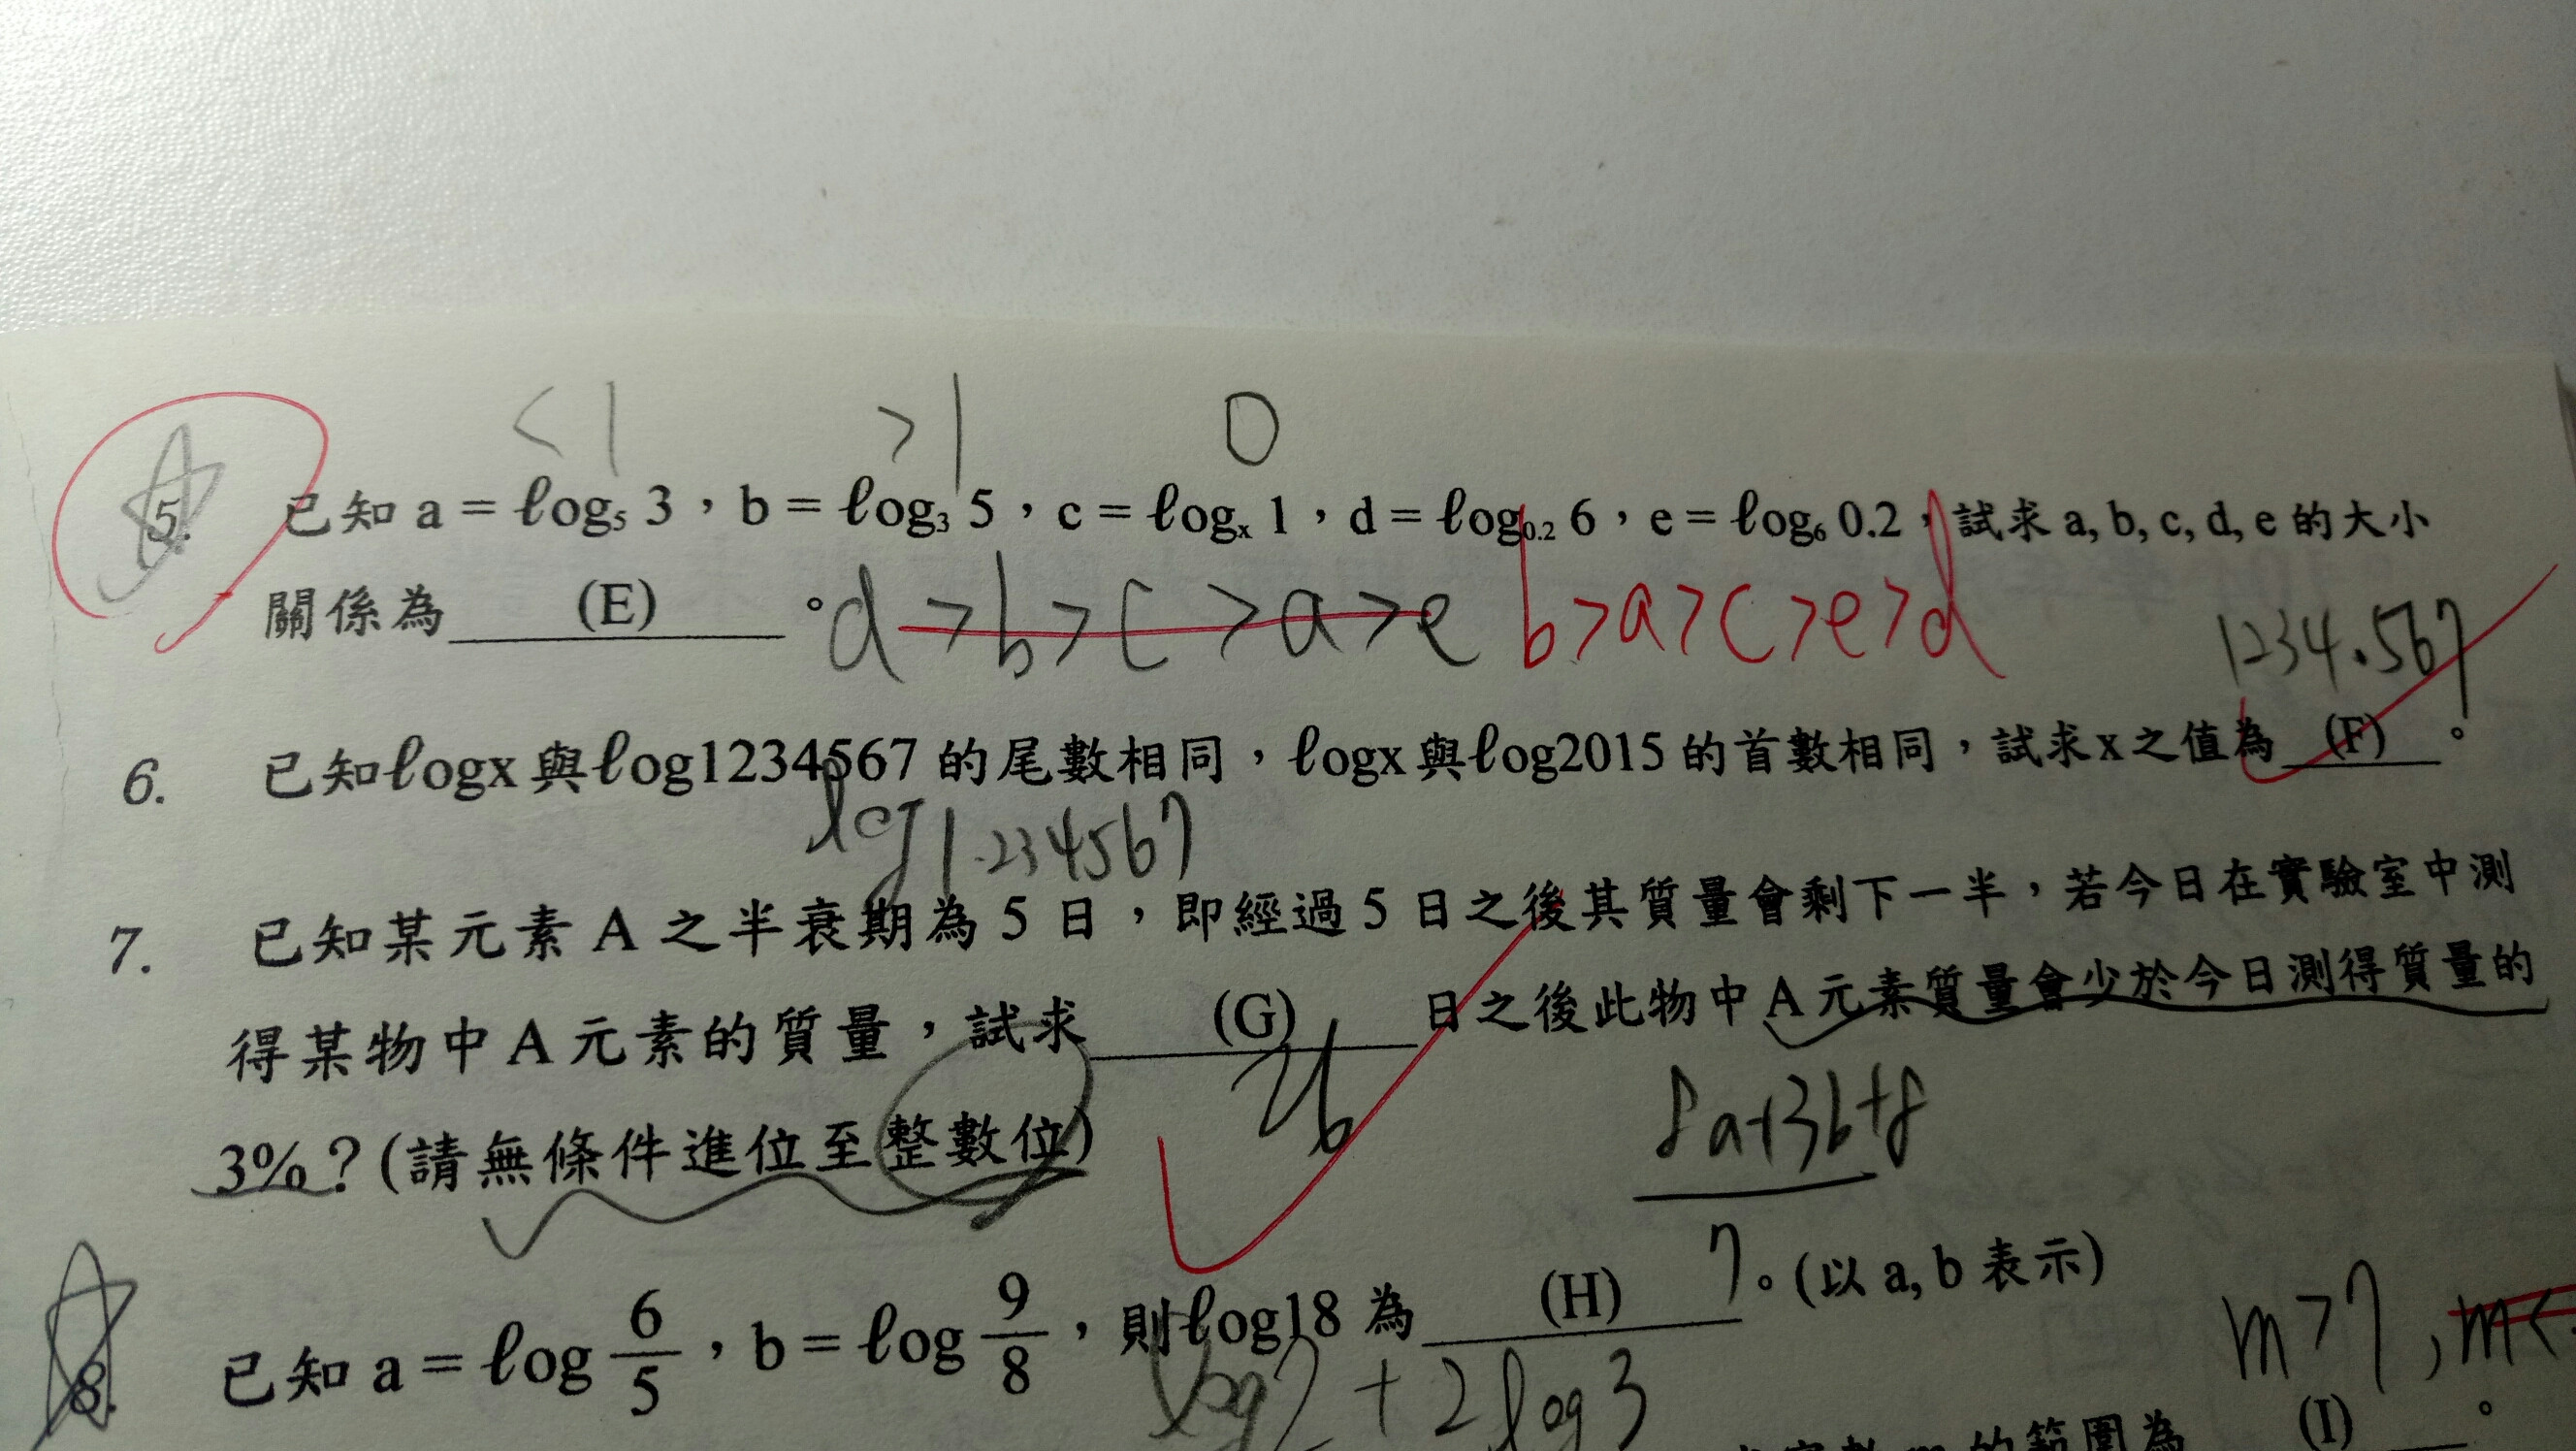 <1 >1 0
5. 已知 a = ℓog₅ 3，b = ℓog₃ 5，c = ℓogₓ 1，d = ℓog₀.₂ 6，e = ℓog₆ 0.2，試求 a, b, c, d, e 的大小
關係為 (E) 。d > b > c > a > e b > a > c > e > d
1234.567
6. 已知ℓogx 與ℓog1234567 的尾數相同，ℓogx 與ℓog2015 的首數相同，試求 x 之值為 (F) 。
log 1.234567
7. 已知某元素 A 之半衰期為 5 日，即經過 5 日之後其質量會剩下一半，若今日在實驗室中測
得某物中 A 元素的質量，試求 (G) 日之後此物中 A 元素質量會少於今日測得質量的
26
3%？(請無條件進位至整數位)
8a+3b+8
7
8. 已知 a = ℓog 6/5，b = ℓog 9/8，則ℓog18 為 (H) 。(以 a, b 表示)
log2 + 2log3
m>7, m<
的範圍為 (I) 。